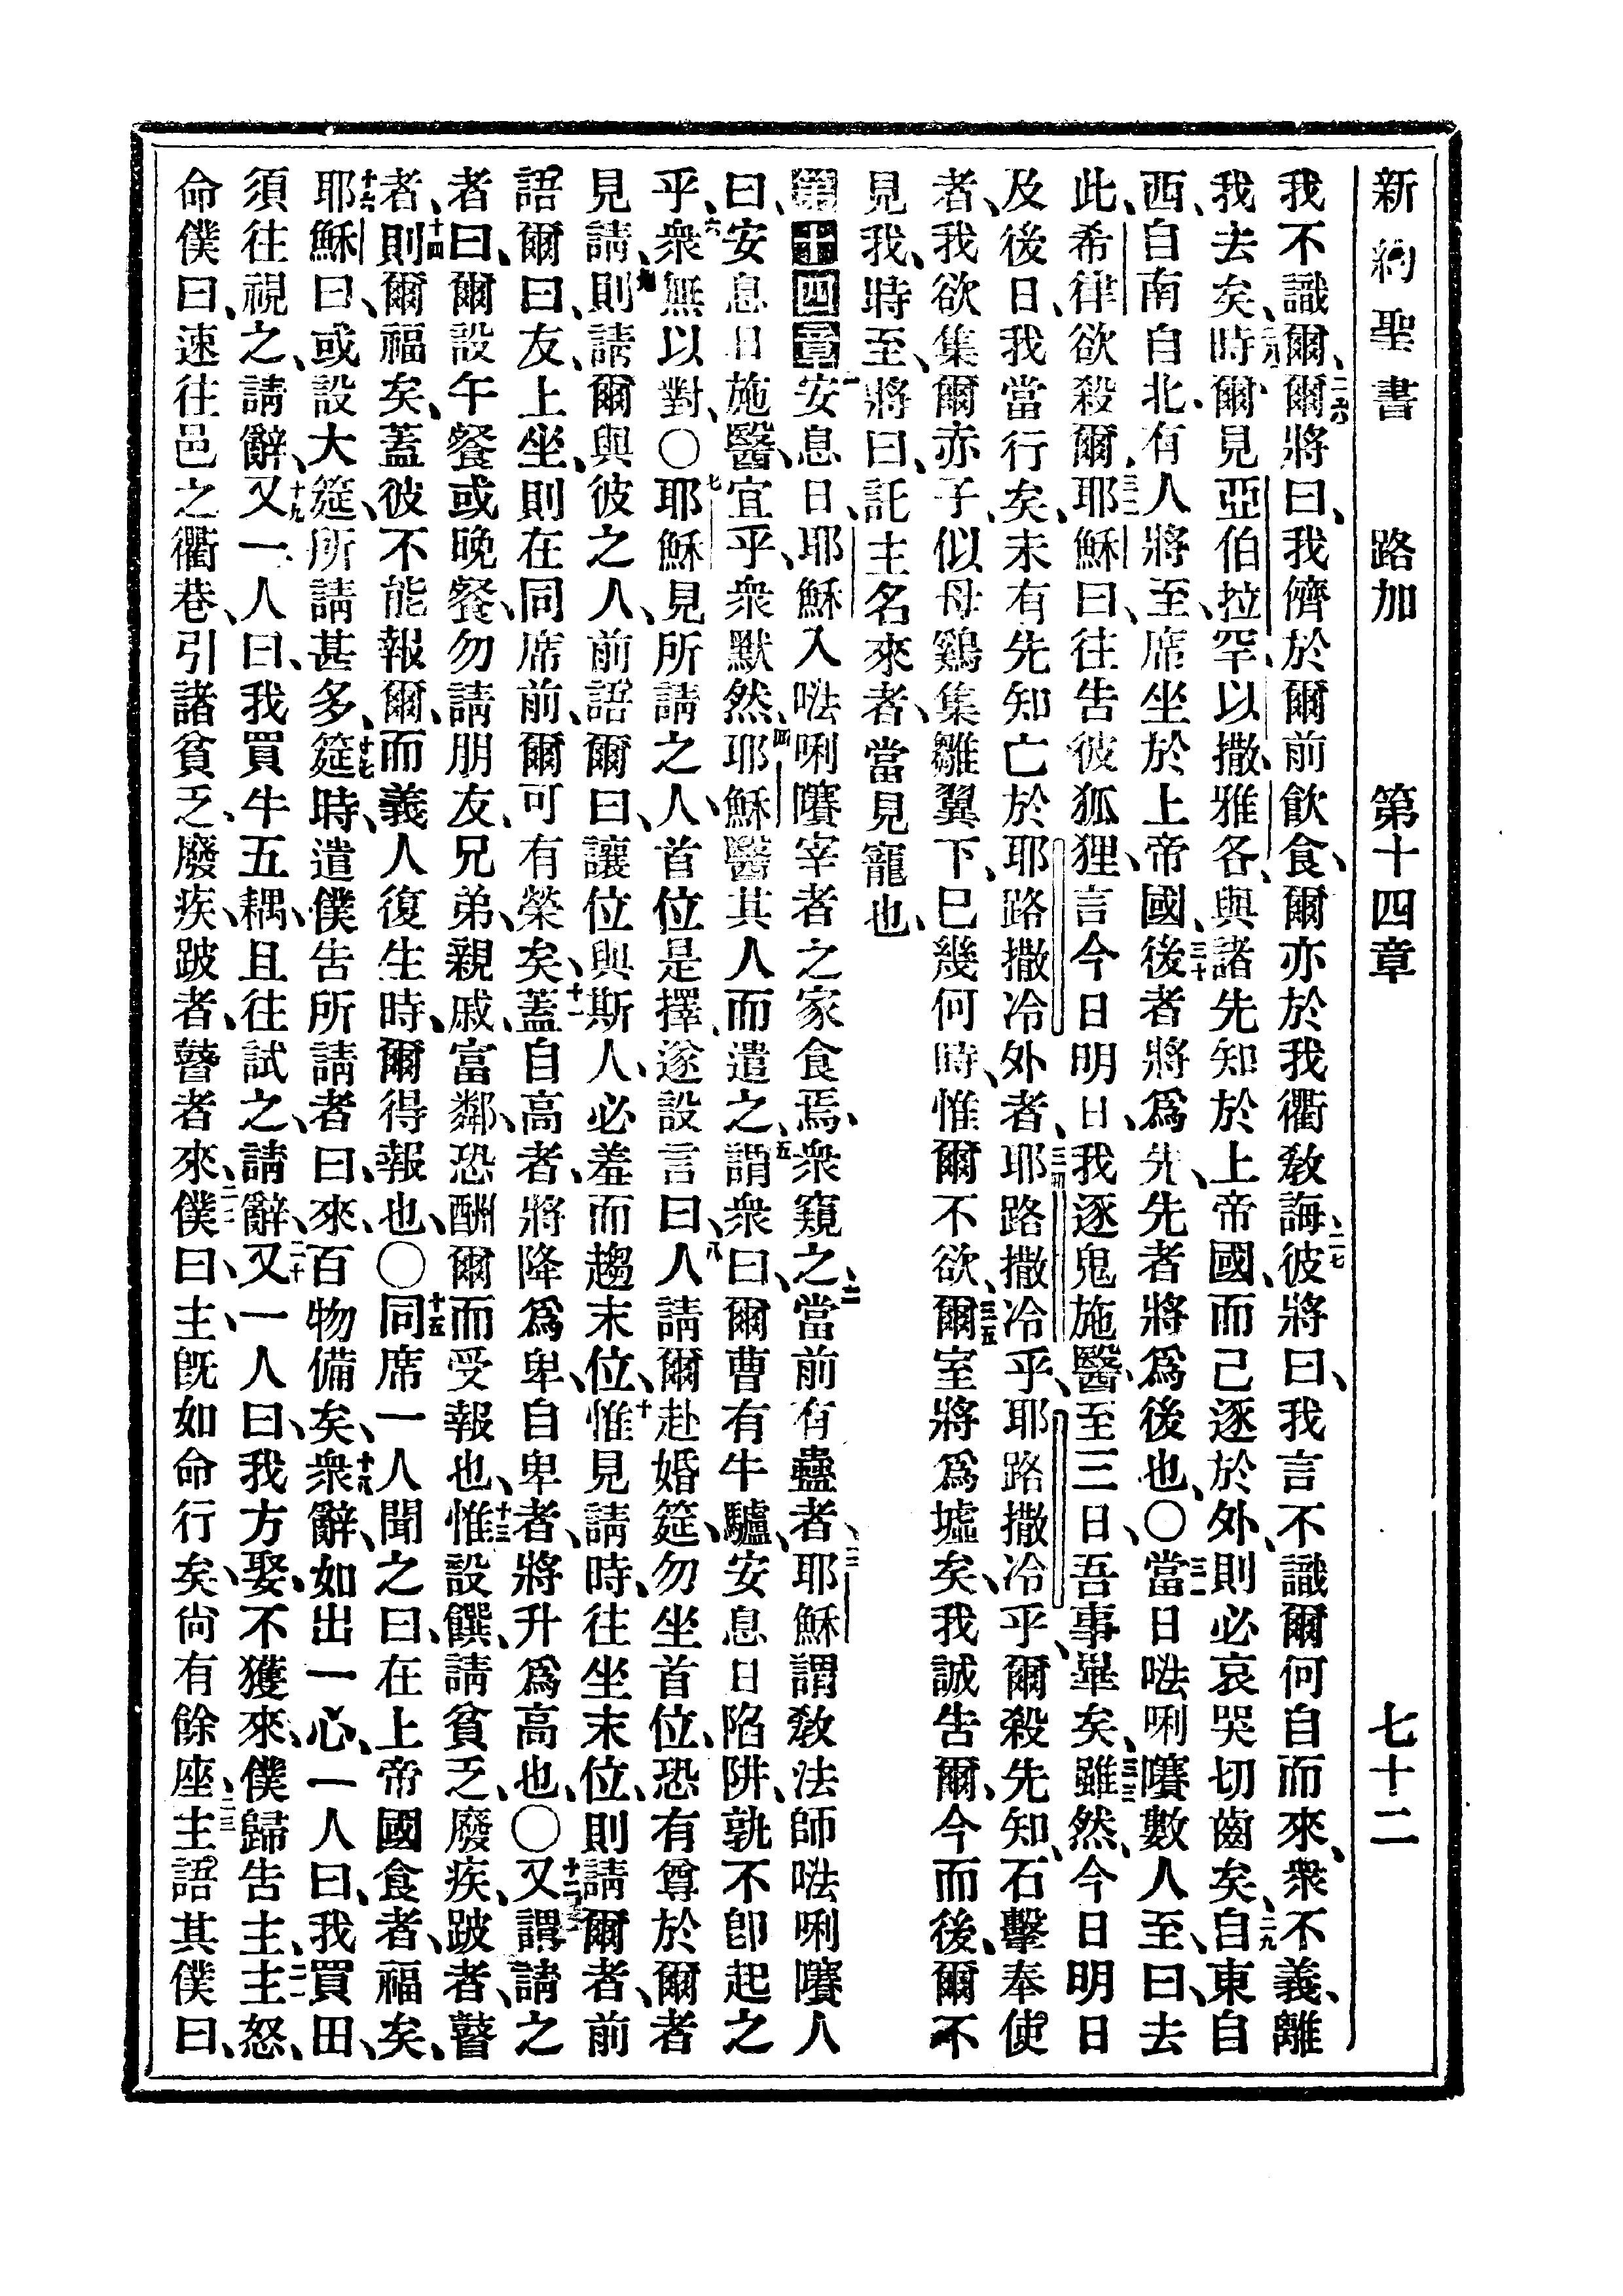 新約聖書 路加 第十四章 七十二
我不識爾、二六爾將曰、我儕於爾前飲食、爾亦於我衢教誨、二七彼將曰、我言不識爾何自而來、衆不義、離
我去矣、時爾見亞伯拉罕、以撒、雅各、與諸先知於上帝國、而己逐於外、則必哀哭切齒矣、二九自東自
西、自南自北、有人將至、席坐於上帝國、三十後者將爲先、先者將爲後也、〇三一當日𠵽唎㘔數人至、曰、去
此、希律欲殺爾、三二耶穌曰、往告彼狐狸、言今日明日、我逐鬼施醫、至三日、吾事畢矣、三三雖然、今日明日
及後日、我當行矣、未有先知亡於耶路撒冷外者、三四耶路撒冷乎、耶路撒冷乎、爾殺先知、石擊奉使
者、我欲集爾赤子、似母鷄集雛翼下、已幾何時、惟爾不欲、三五爾室將爲墟矣、我誠告爾、今而後、爾不
見我、時至、將曰、託主名來者、當見寵也、
第十四章一安息日、耶穌入𠵽唎㘔宰者之家食焉、衆窺之、二當前有蠱者、三耶穌謂教法師𠵽唎㘔人
曰、安息日施醫、宜乎、衆默然、四耶穌醫其人而遣之、五謂衆曰、爾曹有牛驢、安息日陷阱、孰不卽起之
乎、六衆無以對、〇七耶穌見所請之人、首位是擇、遂設言曰、八人請爾赴婚筵、勿坐首位、恐有尊於爾者
見請、九則請爾與彼之人、前語爾曰、讓位與斯人、必羞而趨末位、十惟見請時、往坐末位、則請爾者、前
語爾曰、友、上坐、則在同席前、爾可有榮矣、十一蓋自高者、將降爲卑、自卑者、將升爲高也、〇十二又謂請之
者曰、爾設午餐或晚餐、勿請朋友、兄弟、親戚、富鄰、恐酬爾而受報也、十三惟設饌、請貧乏、廢疾、跛者、瞽
者、十四則爾福矣、蓋彼不能報爾、而義人復生時、爾得報也、〇十五同席一人聞之曰、在上帝國食者、福矣、
十六耶穌曰、或設大筵、所請甚多、十七筵時、遣僕告所請者曰、來、百物備矣、十八衆辭、如出一心、一人曰、我買田、
須往視之、請辭、十九又一人曰、我買牛五耦、且往試之、請辭、二十又一人曰、我方娶、不獲來、僕歸告主、二一主怒、
命僕曰、速往邑之衢巷、引諸貧乏、廢疾、跛者、瞽者來、二二僕曰、主、旣如命行矣、尙有餘座、二三主語其僕曰、